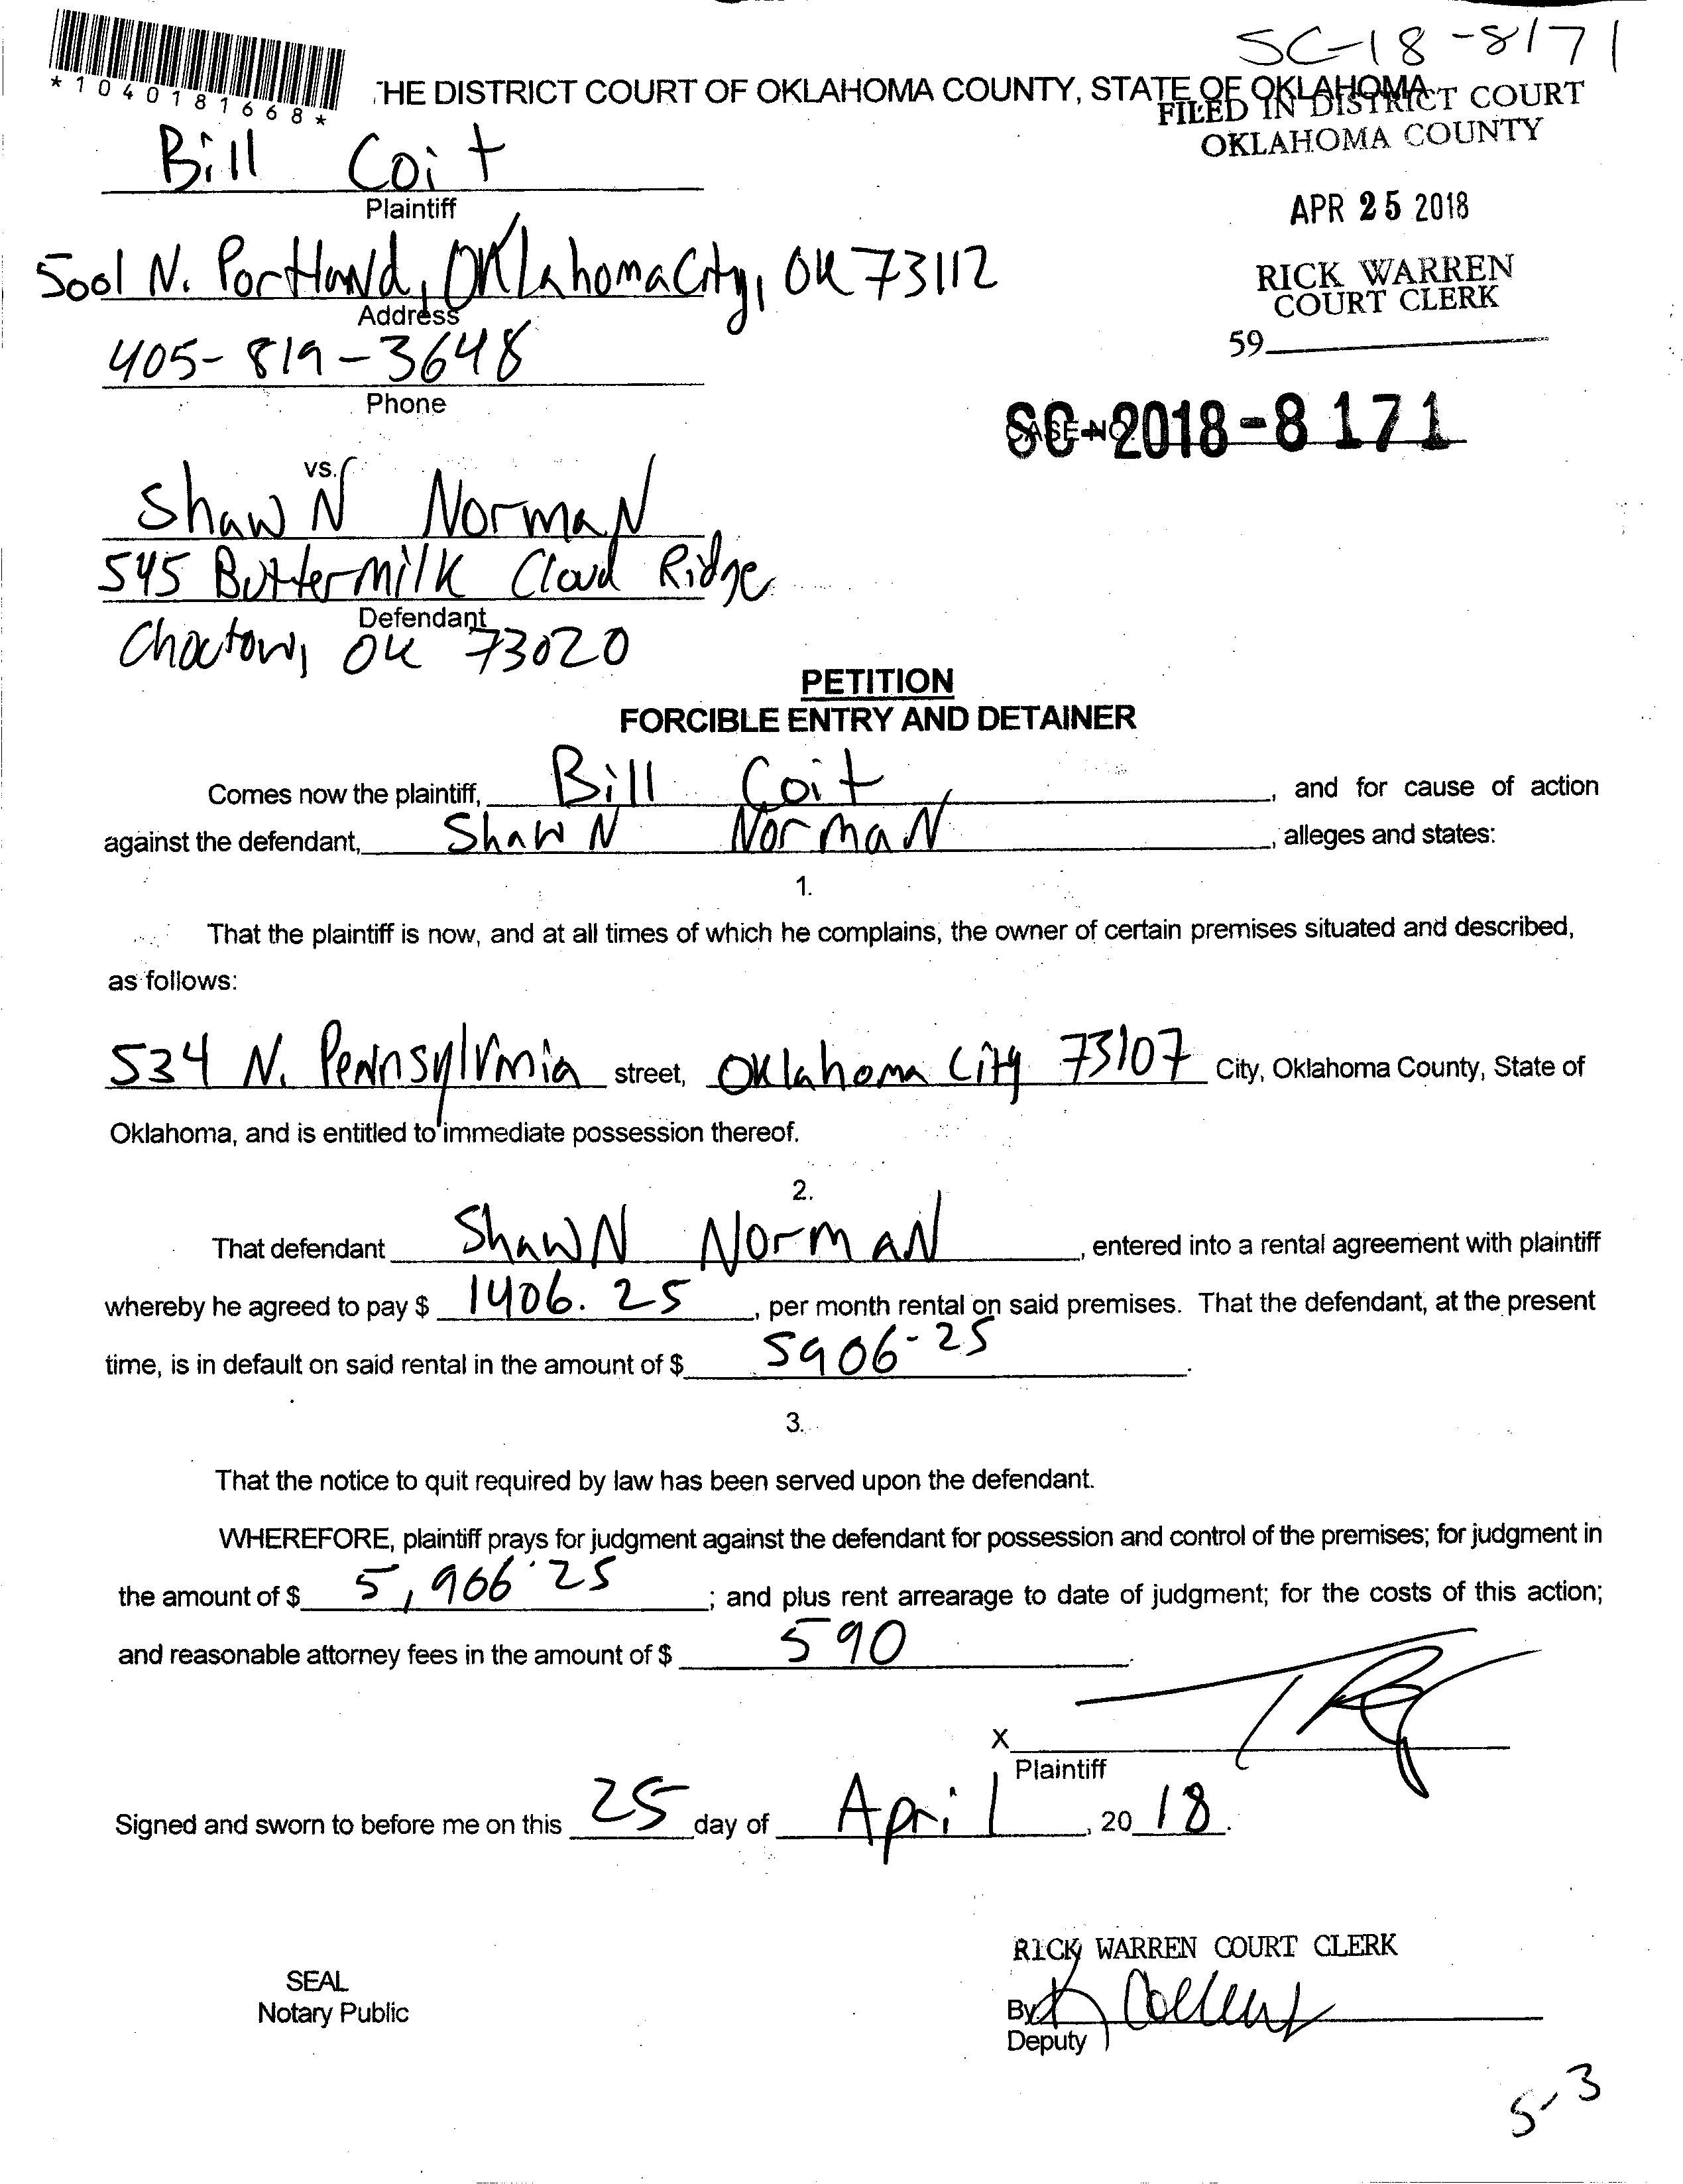 SC-18-8171
*1040181668*
THE DISTRICT COURT OF OKLAHOMA COUNTY, STATE OF OKLAHOMA
FILED IN DISTRICT COURT
OKLAHOMA COUNTY
Bill Coit
Plaintiff
APR 25 2018
5001 N. Portland, Oklahoma City, OK 73112
Address
RICK WARREN
COURT CLERK
405-819-3648
Phone
59
CASE NO.
SC-2018-8171
vs.
Shawn Norman
545 Buttermilk Cloud Ridge
Defendant
Choctaw, OK 73020
PETITION
FORCIBLE ENTRY AND DETAINER
Comes now the plaintiff, Bill Coit, and for cause of action
against the defendant, Shawn Norman, alleges and states:
1.
That the plaintiff is now, and at all times of which he complains, the owner of certain premises situated and described,
as follows:
534 N. Pennsylvania street, Oklahoma City 73107 City, Oklahoma County, State of
Oklahoma, and is entitled to immediate possession thereof.
2.
That defendant Shawn Norman, entered into a rental agreement with plaintiff
whereby he agreed to pay $ 1406.25, per month rental on said premises. That the defendant, at the present
time, is in default on said rental in the amount of $ 5906-25.
3.
That the notice to quit required by law has been served upon the defendant.
WHEREFORE, plaintiff prays for judgment against the defendant for possession and control of the premises; for judgment in
the amount of $ 5,906.25; and plus rent arrearage to date of judgment; for the costs of this action;
and reasonable attorney fees in the amount of $ 590.
X
Plaintiff
Signed and sworn to before me on this 25 day of April, 20 18.
RICK WARREN COURT CLERK
SEAL
Notary Public
By K
Deputy
5-3